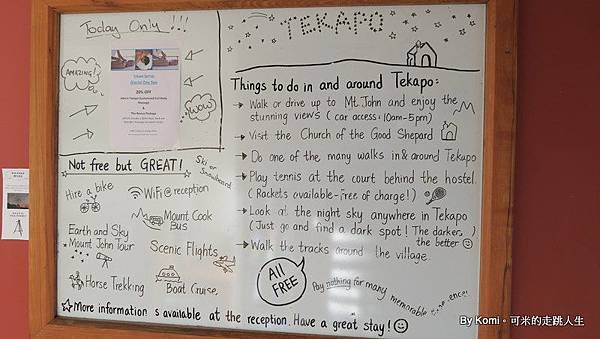 Today Only!!!
AMAZING!
WOW!
20% OFF
Not free but GREAT!
Ski or
Snowboard
Hire a bike
WiFi @ reception
Mount Cook
Bus
Earth and Sky
Mount John Tour
Scenic Flights
Horse Trekking
Boat Cruise
TEKAPO
Things to do in and around Tekapo:
→ Walk or drive up to Mt. John and enjoy the
stunning views (car access: 10am-5pm)
→ Visit the Church of the Good Shepard
→ Do one of the many walks in & around Tekapo
→ Play tennis at the court behind the hostel
(Rackets available-free of charge!)
→ Look at the night sky anywhere in Tekapo
(Just go and find a dark spot! The darker,
the better)
→ Walk the tracks around the village
All
FREE
Pay nothing for many memorable
☆More information is available at the reception. Have a great stay! ☺
By Komi。可米的走跳人生